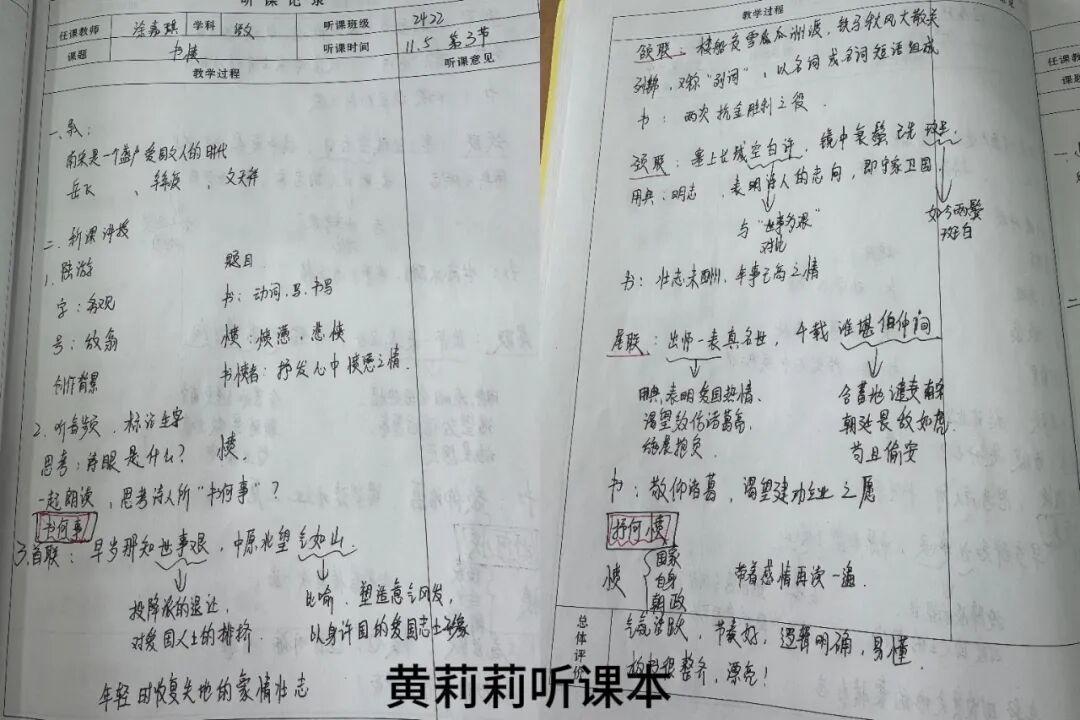 听课记录
任课教师 涂嘉琪 学科 听课班级 2422
课题 书愤 听课时间 11.5 第3节
教学过程 听课意见
一、导：
南宋是一个盛产爱国文人的时代
岳飞、辛弃疾、文天祥
二、新课讲授
1. 陆游 题目
字：务观 书：动词，写，书写
号：放翁 愤：愤懑，悲愤
创作背景 书愤者：抒发心中愤懑之情.
2. 听音频，标注生字
思考：诗眼是什么？ 愤.
一起朗读，思考诗人所“书何事”？
书何事
3. 首联：早岁那知世事艰，中原北望气如山.
投降派的退让， 比喻.塑造意气风发，
对爱国人士的排挤. 以身许国的爱国志士形象
年轻时恢复失地的豪情壮志
教学过程
颔联：楼船夜雪瓜洲渡，铁马秋风大散关
列锦，又称“列词”，以名词或名词短语组成
书：两次抗金胜利之役.
颈联：塞上长城空自许，镜中衰鬓已先斑.
用典：明志，表明诗人的志向，即守家卫国.
与“世事多艰” 如今两鬓
对比 斑白
书：壮志未酬，年事已高之情
尾联：出师一表真名世，千载谁堪伯仲间
用典，表明爱国热情. 含蓄地谴责南宋
渴望效仿诸葛亮， 朝廷畏敌如虎
施展抱负 苟且偷安
书：敬仰诸葛，渴望建功立业之愿
抒何愤
愤 国家 自身 朝政 带着感情再读一遍.
总体评价 气氛活跃，节奏好，逻辑明确，易懂.
很整齐，漂亮！
黄莉莉听课本